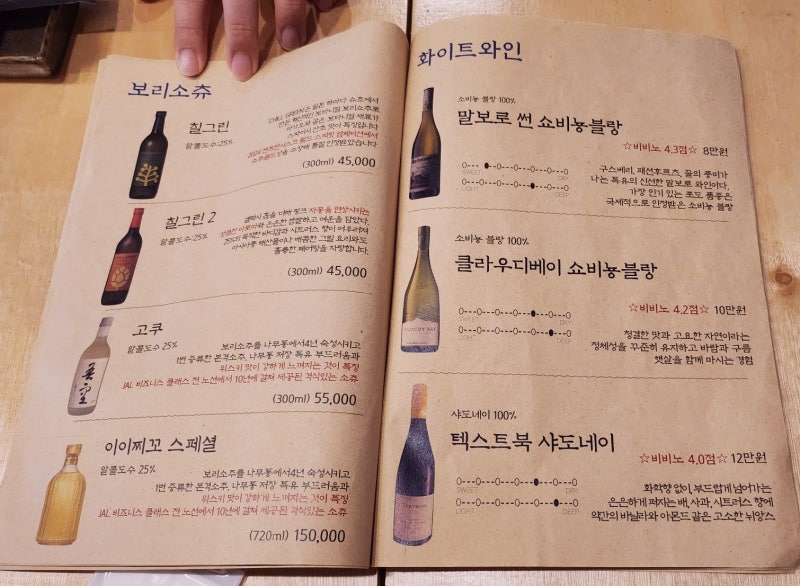 보리소츄
칠그린
알콜도수:25%
(300ml) 45,000
칠그린 2
알콜도수:25%
갤럭시 홉을 더해 핑크 자몽을 연상시키는
상큼한 아로마와 은은한 쌉쌀하고 여운을 담았다.
25%의 묵직한 바디감과 시트러스 향이 어우러져
아시아풍 해산물이나 매콤한 그릴 요리와도
훌륭한 페어링을 자랑합니다.
(300ml) 45,000
고쿠
알콜도수 25%
보리소주를 나무통에서4년 숙성시키고
1번 증류한 본격소주, 나무통 저장 특유 부드러움과
위스키 맛이 강하게 느껴지는 것이 특징
JAL 비즈니스 클래스 전 노선에서 10년에 걸쳐 제공된 격식있는 소츄
(300ml) 55,000
이이찌꼬 스페셜
알콜도수 25%
보리소주를 나무통에서4년 숙성시키고
1번 증류한 본격소주, 나무통 저장 특유 부드러움과
위스키 맛이 강하게 느껴지는 것이 특징
JAL 비즈니스 클래스 전 노선에서 10년에 걸쳐 제공된 격식있는 소츄
(720ml) 150,000
화이트와인
소비뇽 블랑 100%
말보로 썬 쇼비뇽블랑
☆비비노 4.3점☆ 8만원
SWEET DRY
LIGHT DEEP
구스베리, 패션후르츠, 귤의 풍미가
나는 특유의 신선한 말보로 와인이다.
가장 인기 있는 포도 품종은
국제적으로 인정받은 소비뇽 블랑
소비뇽 블랑 100%
클라우디베이 쇼비뇽블랑
☆비비노 4.2점☆ 10만원
SWEET DRY
LIGHT DEEP
CLOUDY BAY
청결한 맛과 고요한 자연이라는
정체성을 꾸준히 유지하고 바람과 구름
햇살을 함께 마시는 경험
샤도네이 100%
텍스트북 샤도네이
☆비비노 4.0점☆ 12만원
SWEET DRY
LIGHT DEEP
화학향 없이, 부드럽게 넘어가는
은은하게 퍼지는 배, 사과, 시트러스 향에
약간의 바닐라와 아몬드 같은 고소한 뉘앙스